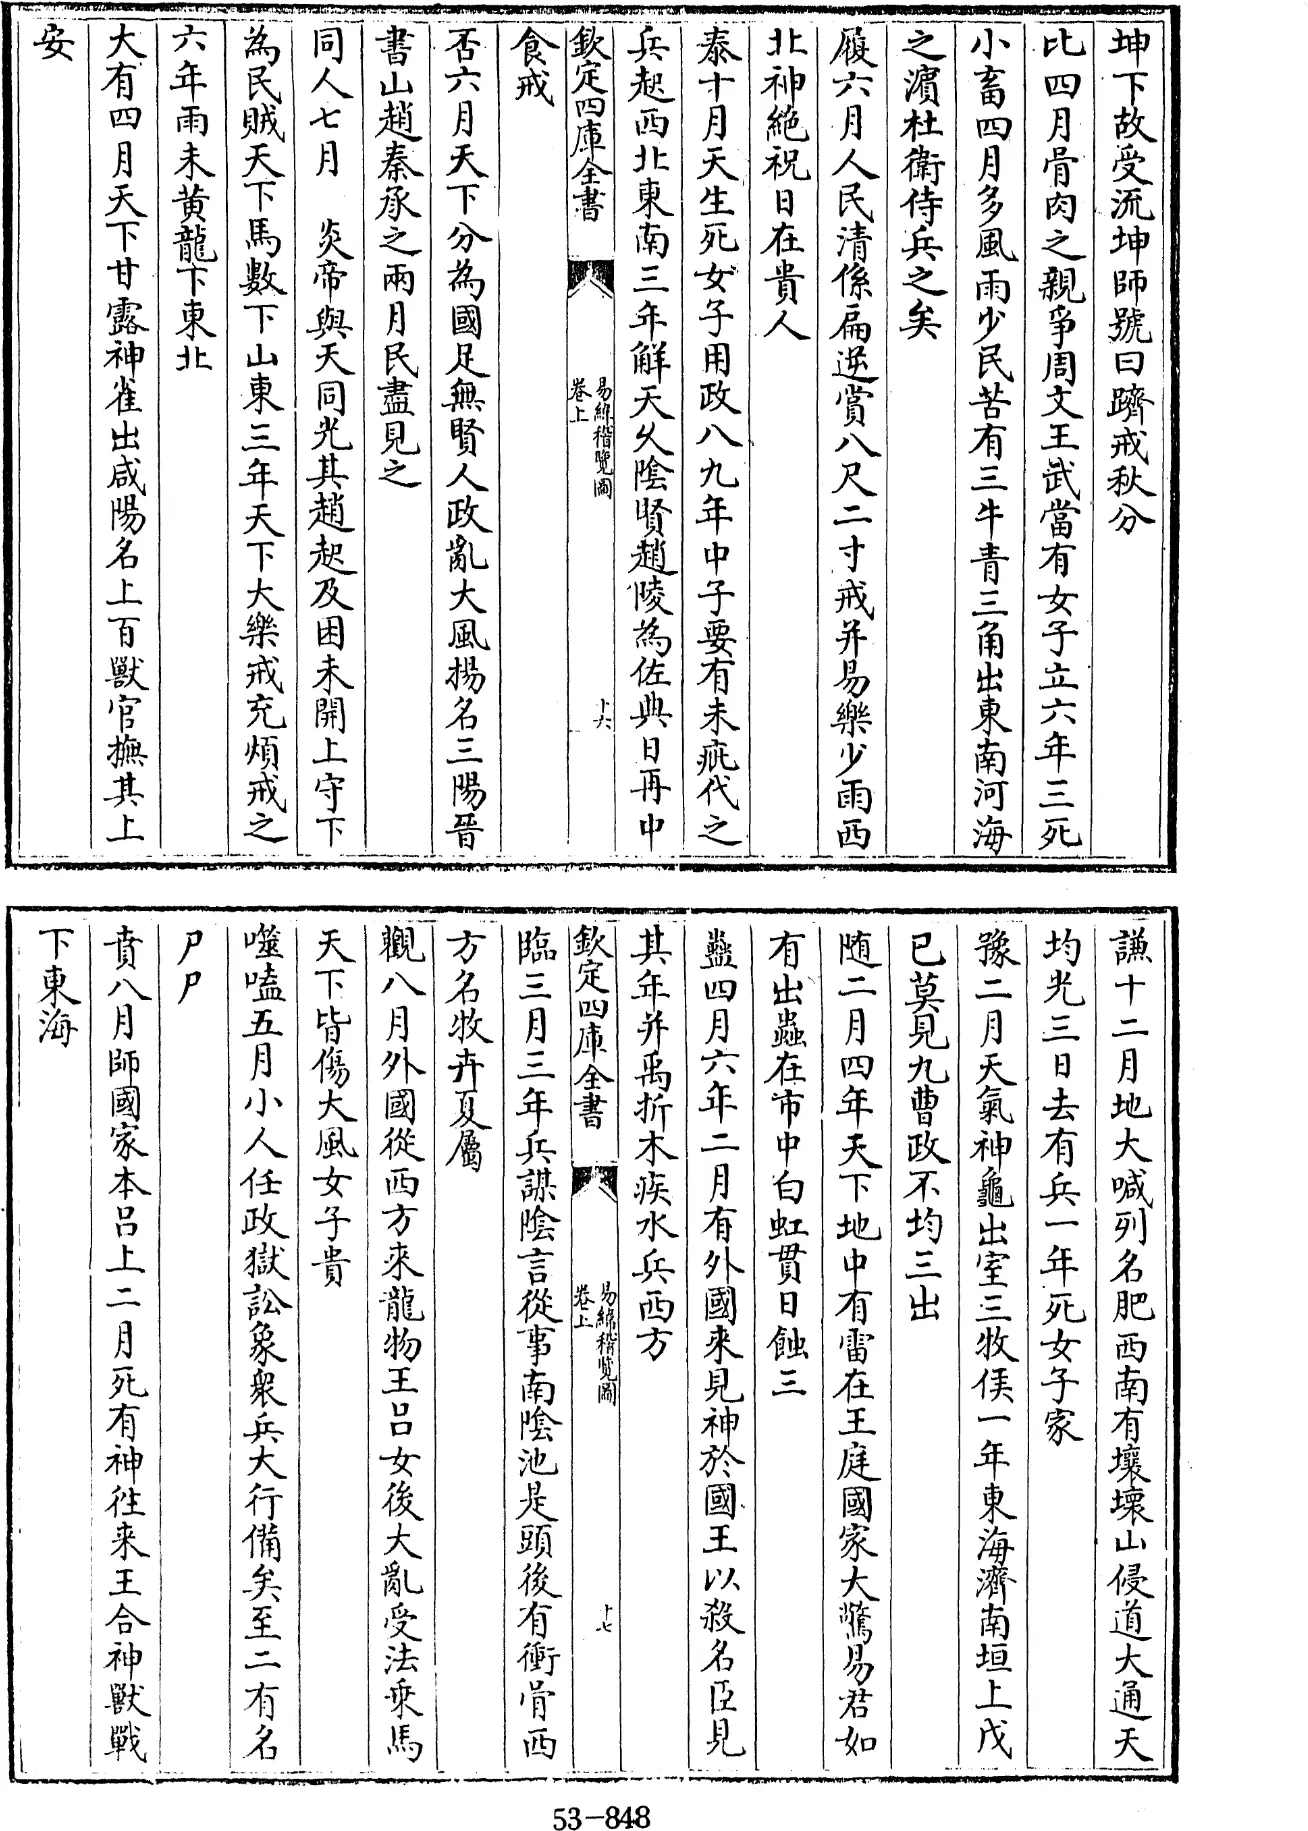 坤下故受流坤師號曰躋戒秋分
比四月骨肉之親爭周文王武當有女子立六年三死
小畜四月多風雨少民苦有三牛青三角出東南河海
之濵杜衛侍兵之矣
履六月人民清係扁逆賞八尺二寸戒并易樂少雨西
北神絶祝日在貴人
泰十月天生死女子用政八九年中子要有未疷代之
兵起西北東南三年解天久陰賢趙陵為佐典日再中
欽定四庫全書
易緯稽覽圖
卷上
十六
食戒
否六月天下分為國足無賢人政亂大風揚名三陽晉
書山趙秦承之兩月民盡見之
同人七月 炎帝與天同光其趙起及困未開上守下
為民賊天下馬數下山東三年天下大樂戒充煩戒之
六年雨未黄龍下東北
大有四月天下甘露神雀出咸陽名上百獸官撫其上
安
謙十二月地大喊列名肥西南有壤壞山侵道大通天
均光三日去有兵一年死女子家
豫二月天氣神龜出室三牧侯一年東海濟南垣上戊
已莫見九曹政不均三出
随二月四年天下地中有雷在王庭國家大驚易君如
有出蟲在市中白虹貫日蝕三
蠱四月六年二月有外國來見神於國王以殺名臣見
其年并禹折木疾水兵西方
欽定四庫全書
易緯稽覽圖
卷上
十七
臨三月三年兵謀陰言從事南陰池是頭後有衝骨西
方名牧卉夏屬
觀八月外國從西方來龍物王吕女後大亂受法乘馬
天下皆傷大風女子貴
噬嗑五月小人任政獄訟象衆兵大行備矣至二有名
尸尸
賁八月師國家本吕上二月死有神徃来王合神獸戰
下東海
53-848